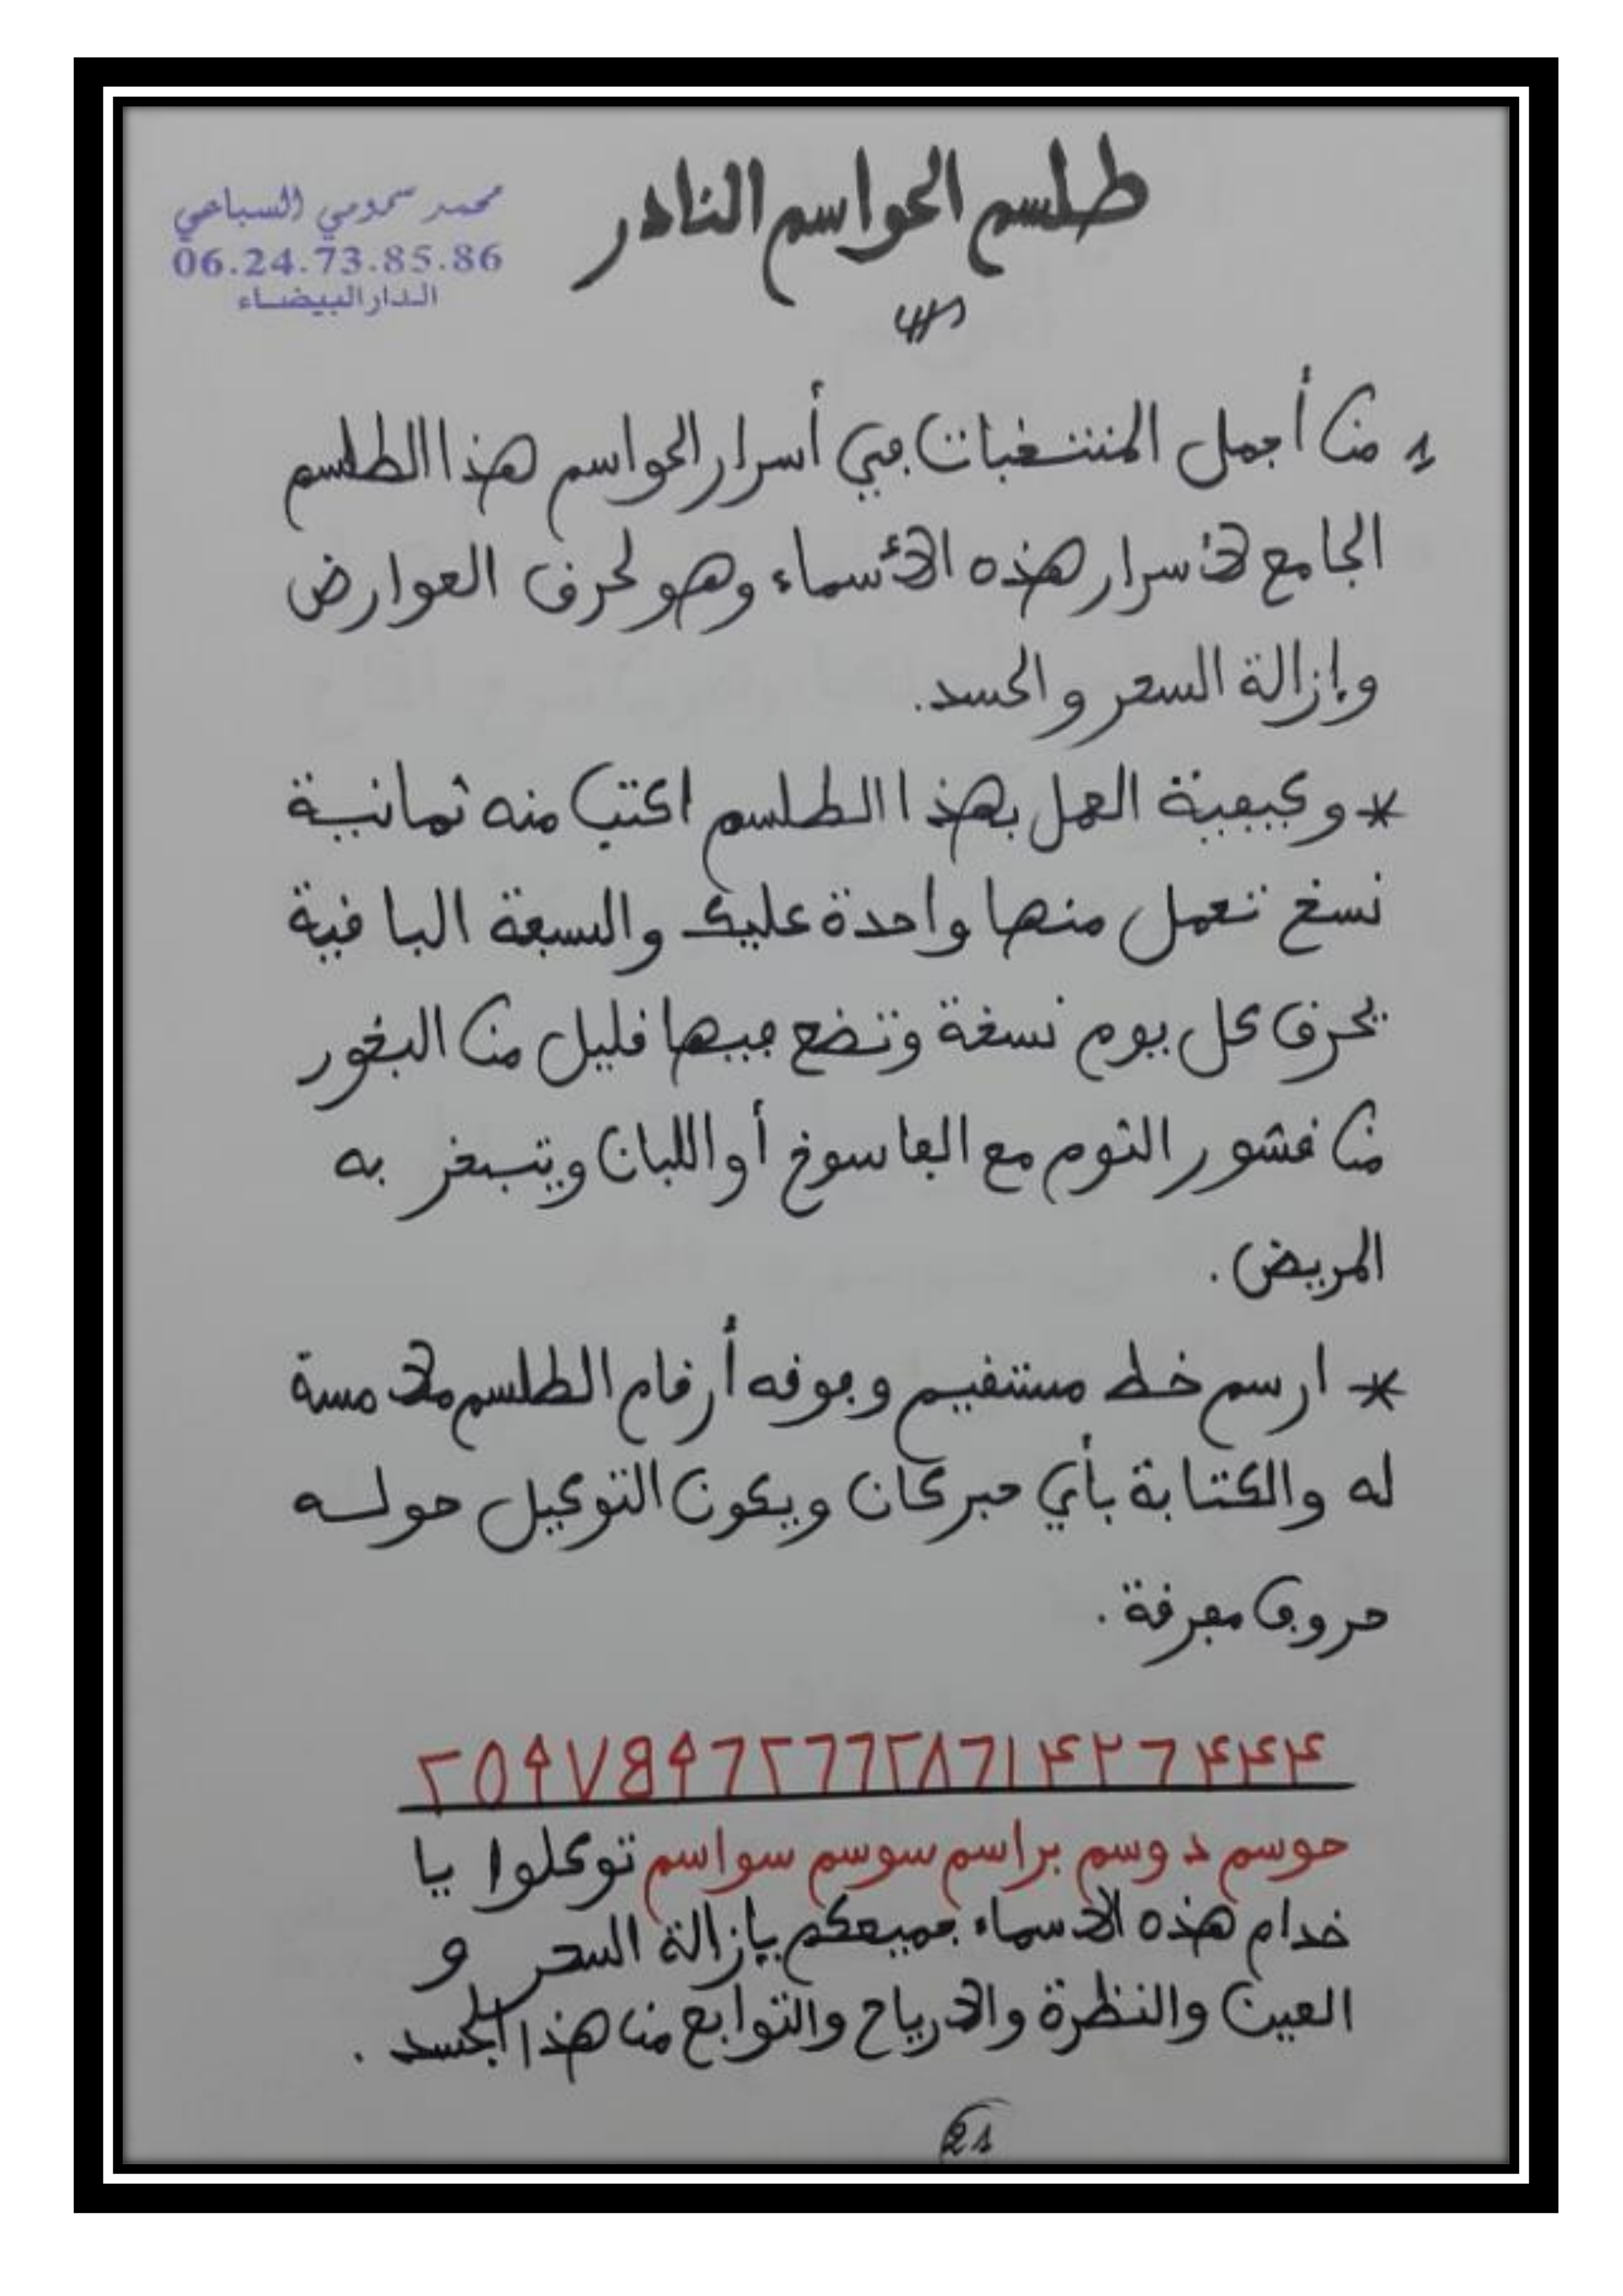 طلسم الحواسم النادر
محمد سمومي السباعي
06.24.73.85.86
الدار البيضاء
من أجمل المنتخبات في أسرار الحواسم هذا الطلسم
الجامع لأسرار هذه الأسماء وهو لحرق العوارض
وإزالة السحر والحسد.
* وكيفية العمل بهذا الطلسم اكتب منه ثمانية
نسخ تعمل منها واحدة عليك والسبعة الباقية
يحرق كل يوم نسخة وتضع فيها قليل من البخور
من قشور الثوم مع الفاسوخ أو اللبان ويتبخر به
المريض.
* ارسم خط مستقيم وفوقه أرقام الطلسم ملامسة
له والكتابة بأي حبر كان ويكون التوكيل حوله
حروف مفرقة.
حوسم دوسم براسم سوسم سواسم توكلوا يا
خدام هذه الاسماء جميعكم بإزالة السحر و
العين والنظرة والارياح والتوابع من هذا الجسد.
21